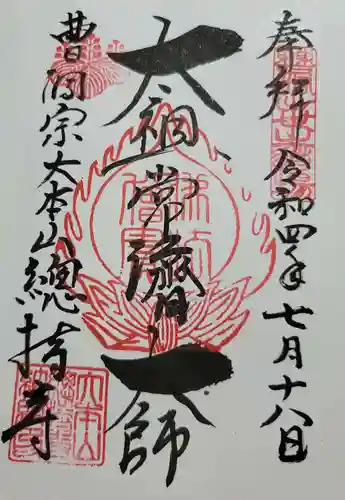 奉拝 令和四年七月十八日
太祖常濟大師
曹洞宗大本山總持寺